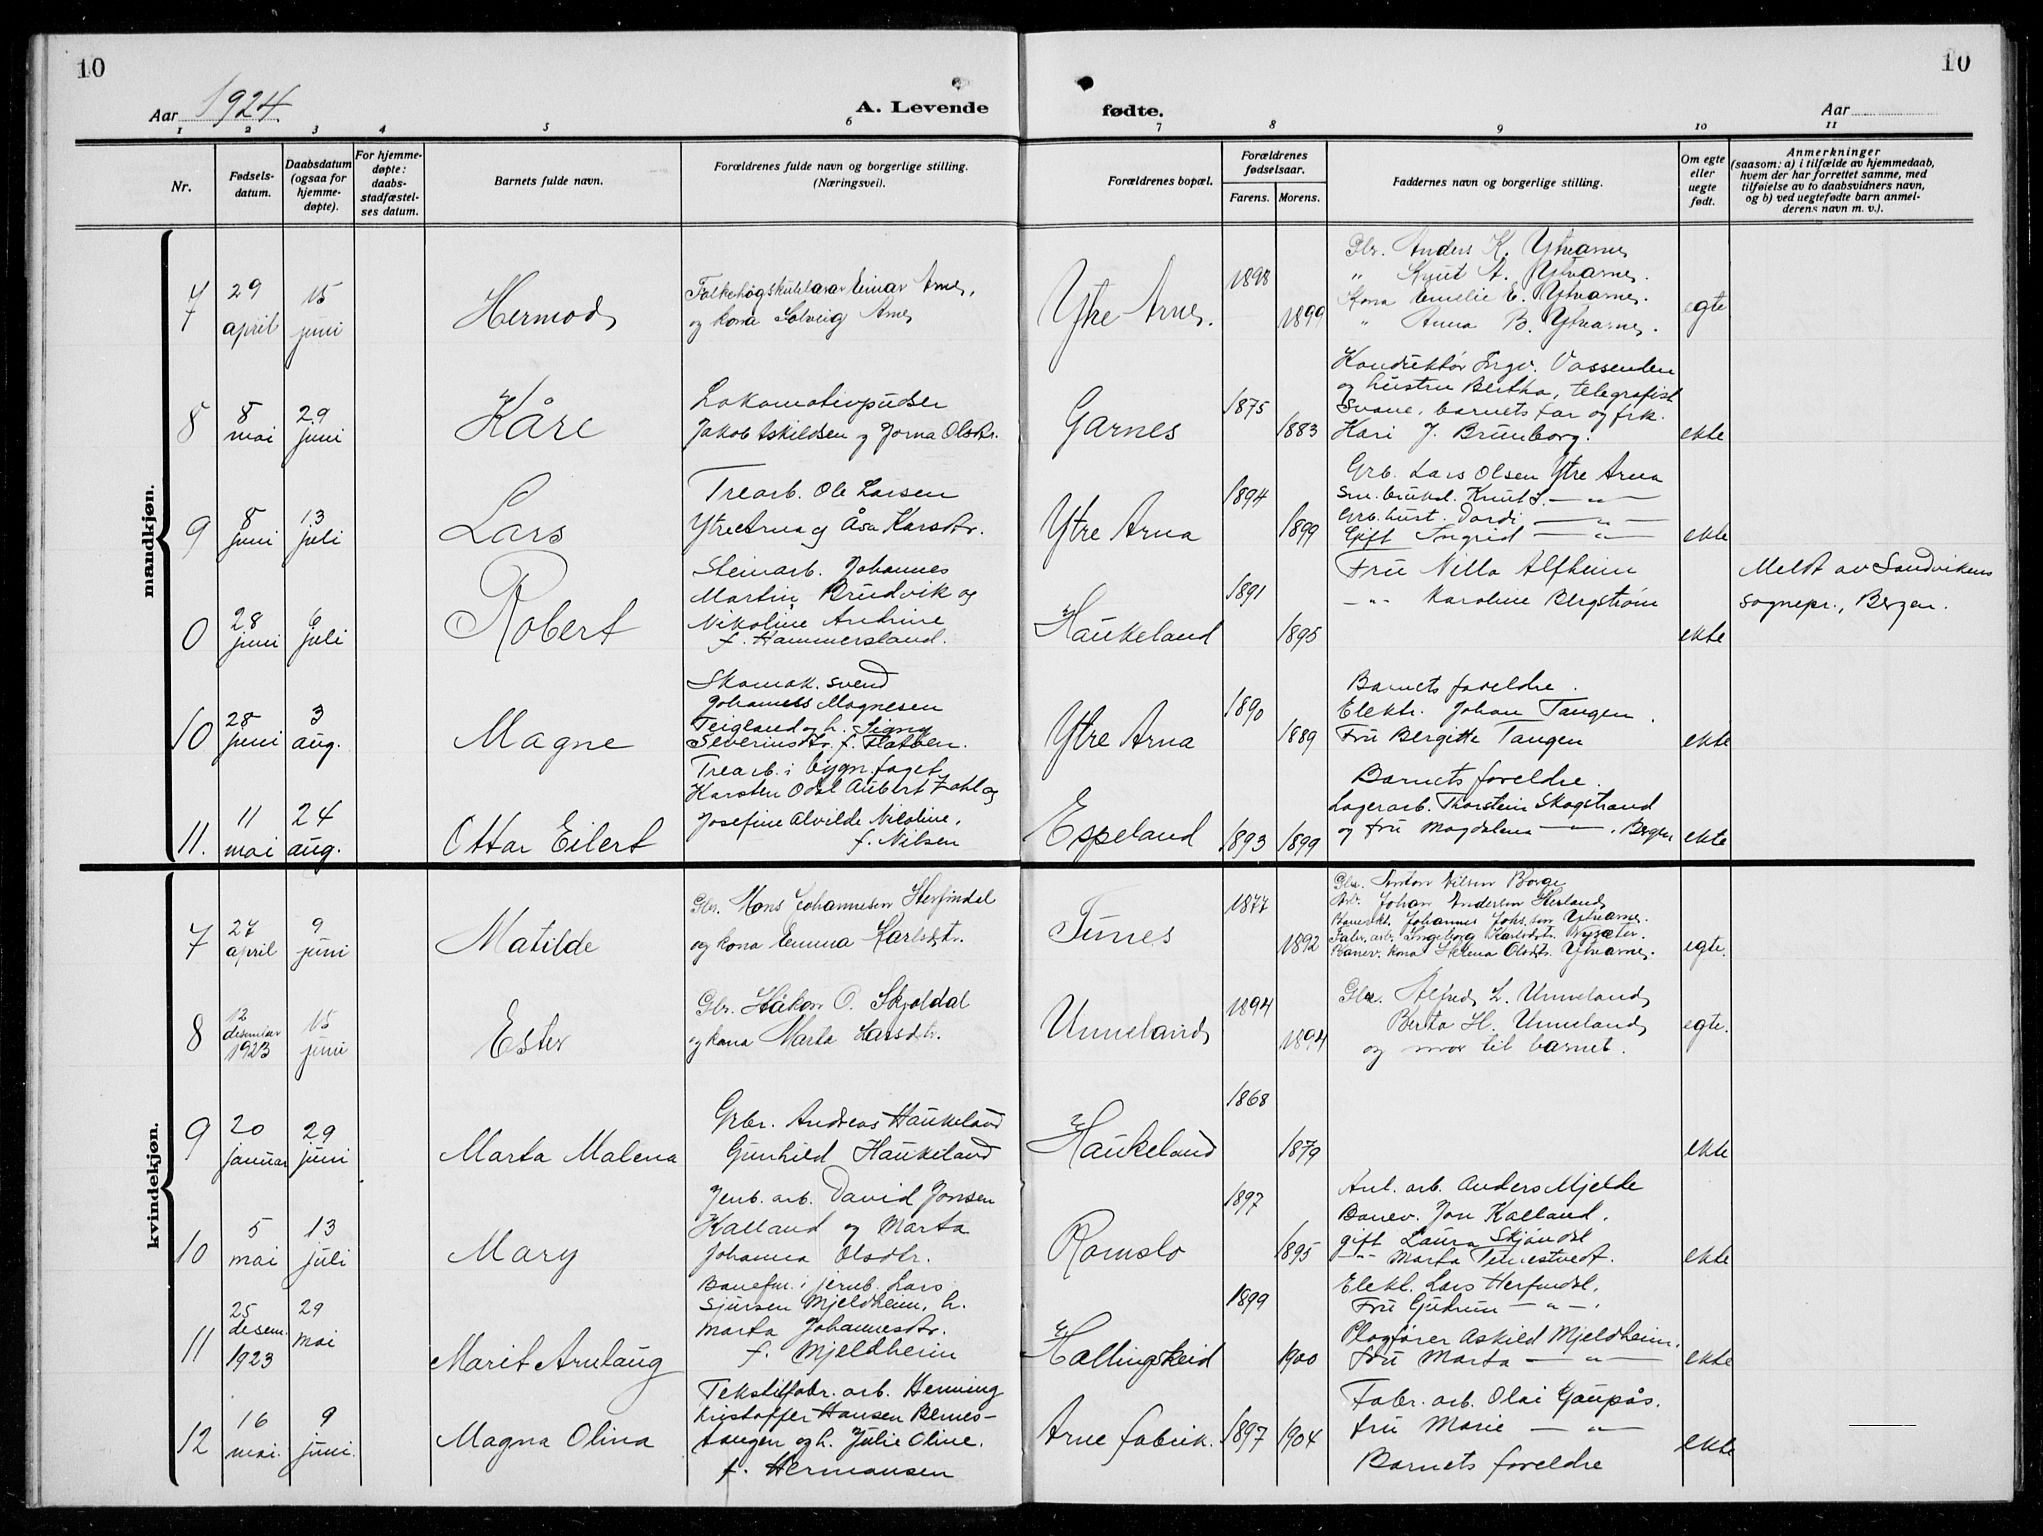 10
10
Aar 1924.
A. Levende fødte.
Aar
1 2 3 4 5 6 7 8 9 10 11
Nr.
Fødsels-
datum.
Daabsdatum
(ogsaa for
hjemme-
døpte).
For hjemme-
døpte:
daabs-
stadfæstel-
ses datum.
Barnets fulde navn.
Forældrenes fulde navn og borgerlige stilling.
(Næringsvei).
Forældrenes bopæl.
Forældrenes
fødselsaar.
Farens. Morens.
Faddernes navn og borgerlige stilling.
Om egte
eller
uegte
født.
Anmerkninger
(saasom: a) i tilfælde av hjemmedaab,
hvem der har forrettet samme, med
tilføielse av to daabsvidners navn,
og b) ved uegtefødte barn anmel-
derens navn m. v.).
mandkjøn.
7
29
april
15
juni
Hermod
Folkehøgskulelærar Einar Arne,
og kona Solveig Arne
Ytre Arne.
1898
1899
Gbr. Anders K. Ytrearne
" Knut A. Ytrearne.
Kona Emelie E. Ytrearne.
" Anna B. Ytrearne.
egte
8
8
mai
29
juni
Kåre
Lokomotivpudser
Jakob Askildsen og Jorna Olsdtr.
Garnes
1875
1883
Konduktør Ingv. Vassenden
og hustru Bertha, telegrafist
Svane, barnets far og frk.
Kari J. Brunborg.
ekte
9
8
juni
13
juli
Lars
Trearb. Ole Larsen
Ytre Arna og Åsa Larsdtr.
Ytre Arna
1894
1899
Grb. Lars Olsen Ytre Arna
Sm. bruksl. Knut L. — " —
Grb. hust. Dordi — " —
Gift Ingrid — " —
ekte
0
28
juni
6
juli
Robert
Steinarb. Johannes
Martin Brudvik og
Nikoline Antrine
f. Hammersland.
Haukeland
1891
1895
Fru Nilla Alfheim
— " — Karoline Bergstrøm
ekte
Meldt av Sandvikens
sognepr., Bergen.
10
28
juni
3
aug.
Magne
Skomak. svend
Johannes Magnesen
Teigland og h. Signy
Severinsdtr. f. Flatben.
Ytre Arna
1890
1889
Barnets foreldre.
Elektr. Johan Tangen.
Fru Bergitte Tangen
ekte
11.
11
mai
24
aug.
Ottar Eilert
Trearb. i bygn. faget
Karsten Odal Aubert Zahl og
Josefine Alvilde Nicoline,
f. Nilsen
Espeland
1893
1899
Barnets foreldre.
Lagerarb. Thorstein Skogstrand
og fru Magdalena — " —, Bergen
ekte
kvindekjøn.
7
27
april
9
juni
Matilde
Gbr. Mons Johannesen Herfindal
og kona Emma Karlsdtr.
Tunes
1877
1892
Gbr. Anton Nilsen Borge
Arb. Johan Andersen Herland
Banevkt. Johannes Johs.sen Ytrearne.
Fabr. arb. Ingeborg Karlsdtr. Nysæter.
Banev. kona Helena Olsdtr. Ytrearne.
egte.
8
12
desember
1923
15
juni
Ester
Gbr. Håkon O. Skjoldal
og kona Marta Larsdtr.
Unneland
1894
1894
Gbr. Alfred L. Unneland
Berta H. Unneland
og mor til barnet.
egte.
9
20
januar
29
juni
Marta Malena
Grbr. Andreas Haukeland
Gunhild Haukeland
Haukeland
1868
1879
ekte
10
5
mai
13
juli
Mary
Jernb. arb. David Jonsen
Kalland og Marta
Johanna Olsdtr.
Romslo
1897
1895
Anl. arb. Anders Mjelde
Banev. Jon Kalland.
gift Laura Skjøndal
— " — Marta Tennestvedt.
ekte
11
25
desem.
1923
29
mai
Marit Arnlaug
Banefm. i jernb. Lars
Sjursen Mjeldheim, h.
Marta Johannesdtr.
f. Mjeldheim
Hallingskeid
1899
1900
Elekt. Lars Herfindal.
Fru Gudrun — " —.
Plogfører Askild Mjeldheim.
Fru Marta — " —
ekte
12
16
mai.
9
juni.
Magna Olina
Tekstilfabr. arb. Henning
Kristoffer Hansen Bernes-
tangen og h. Julie Oline.
f. Hermansen
Arne fabrik.
1897
1904
Fabr. arb. Olai Gaupås.
fru Marie — " —
Barnets foreldre
ekte